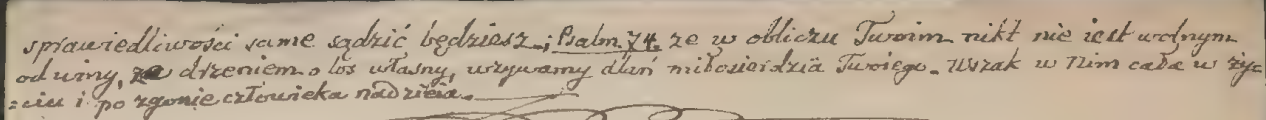 sprawiedliwości same sądzić będziesz; Psalm 74. że w obliczu Twoim nikt nie iest wolnym
od winy, ze drżeniem o los własny, wzywamy dlań miłosierdzia Twoiego. Wszak w nim cała w ży-
=ciu i po zgonie człowieka nadzieia.